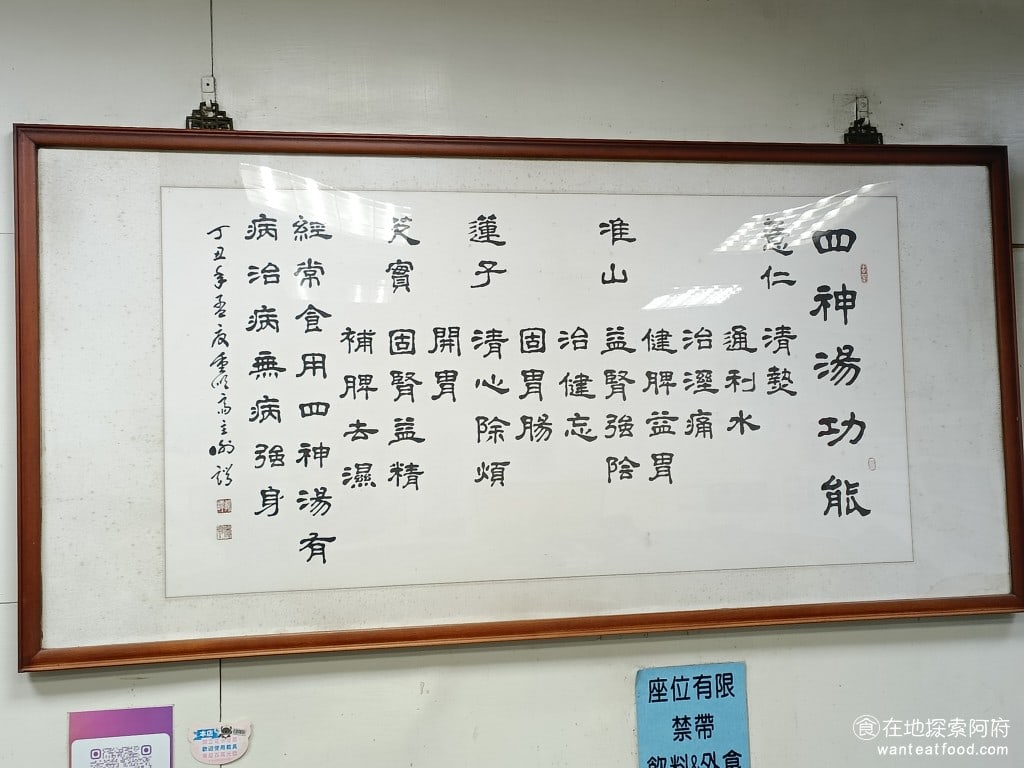 四神湯功能
薏仁 清熱
通利水
治溼痛
健脾益胃
准山 益腎強陰
治健忘
固胃腸
蓮子 清心除煩
開胃
芡實 固腎益精
補脾去濕
經常食用四神湯有
病治病無病強身
丁丑年孟夏
座位有限
禁帶
飲料&外食
本店
歡迎使用載具
食在地探索阿府
wanteatfood.com